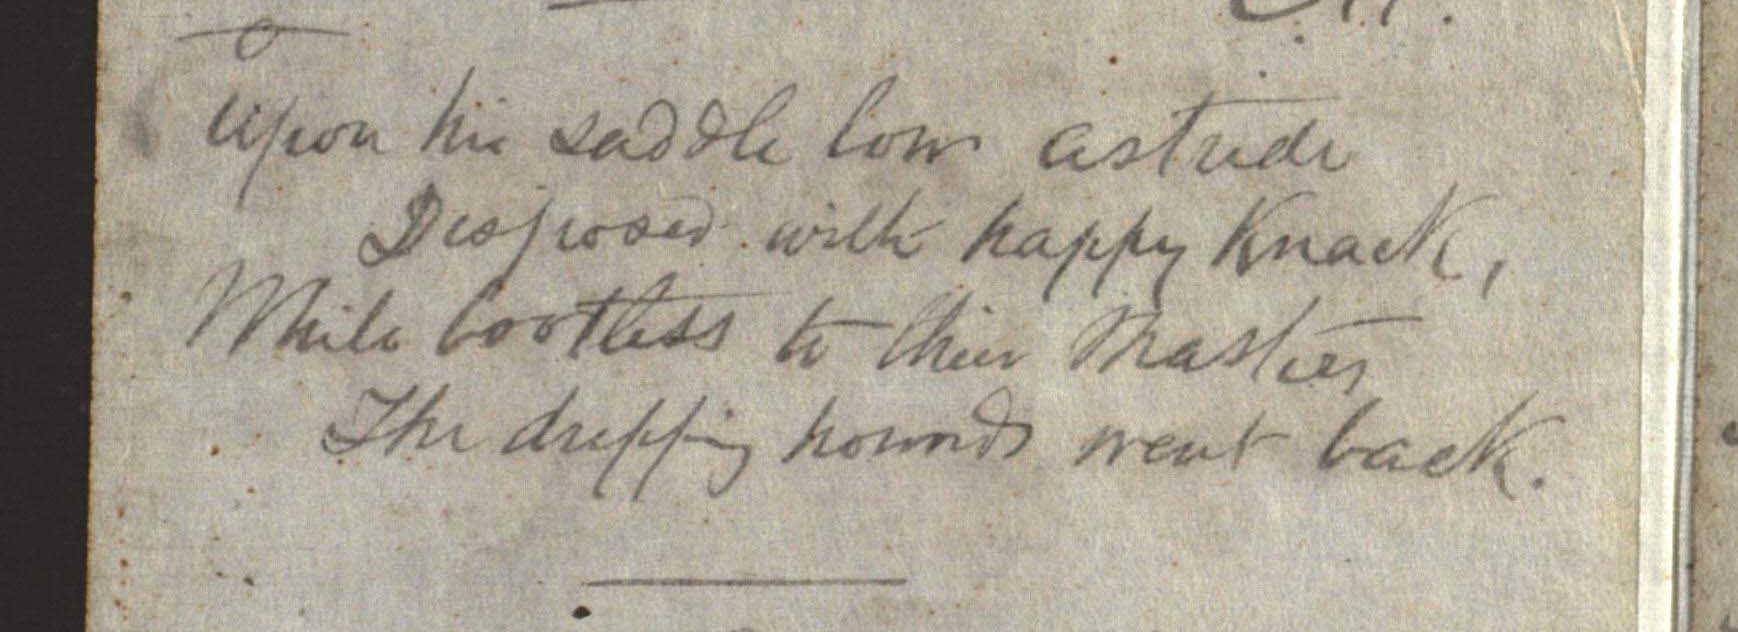 Upon his saddle low astride
Disposed with happy Knack,
While bootless to their Masters
The dripping hounds went back.